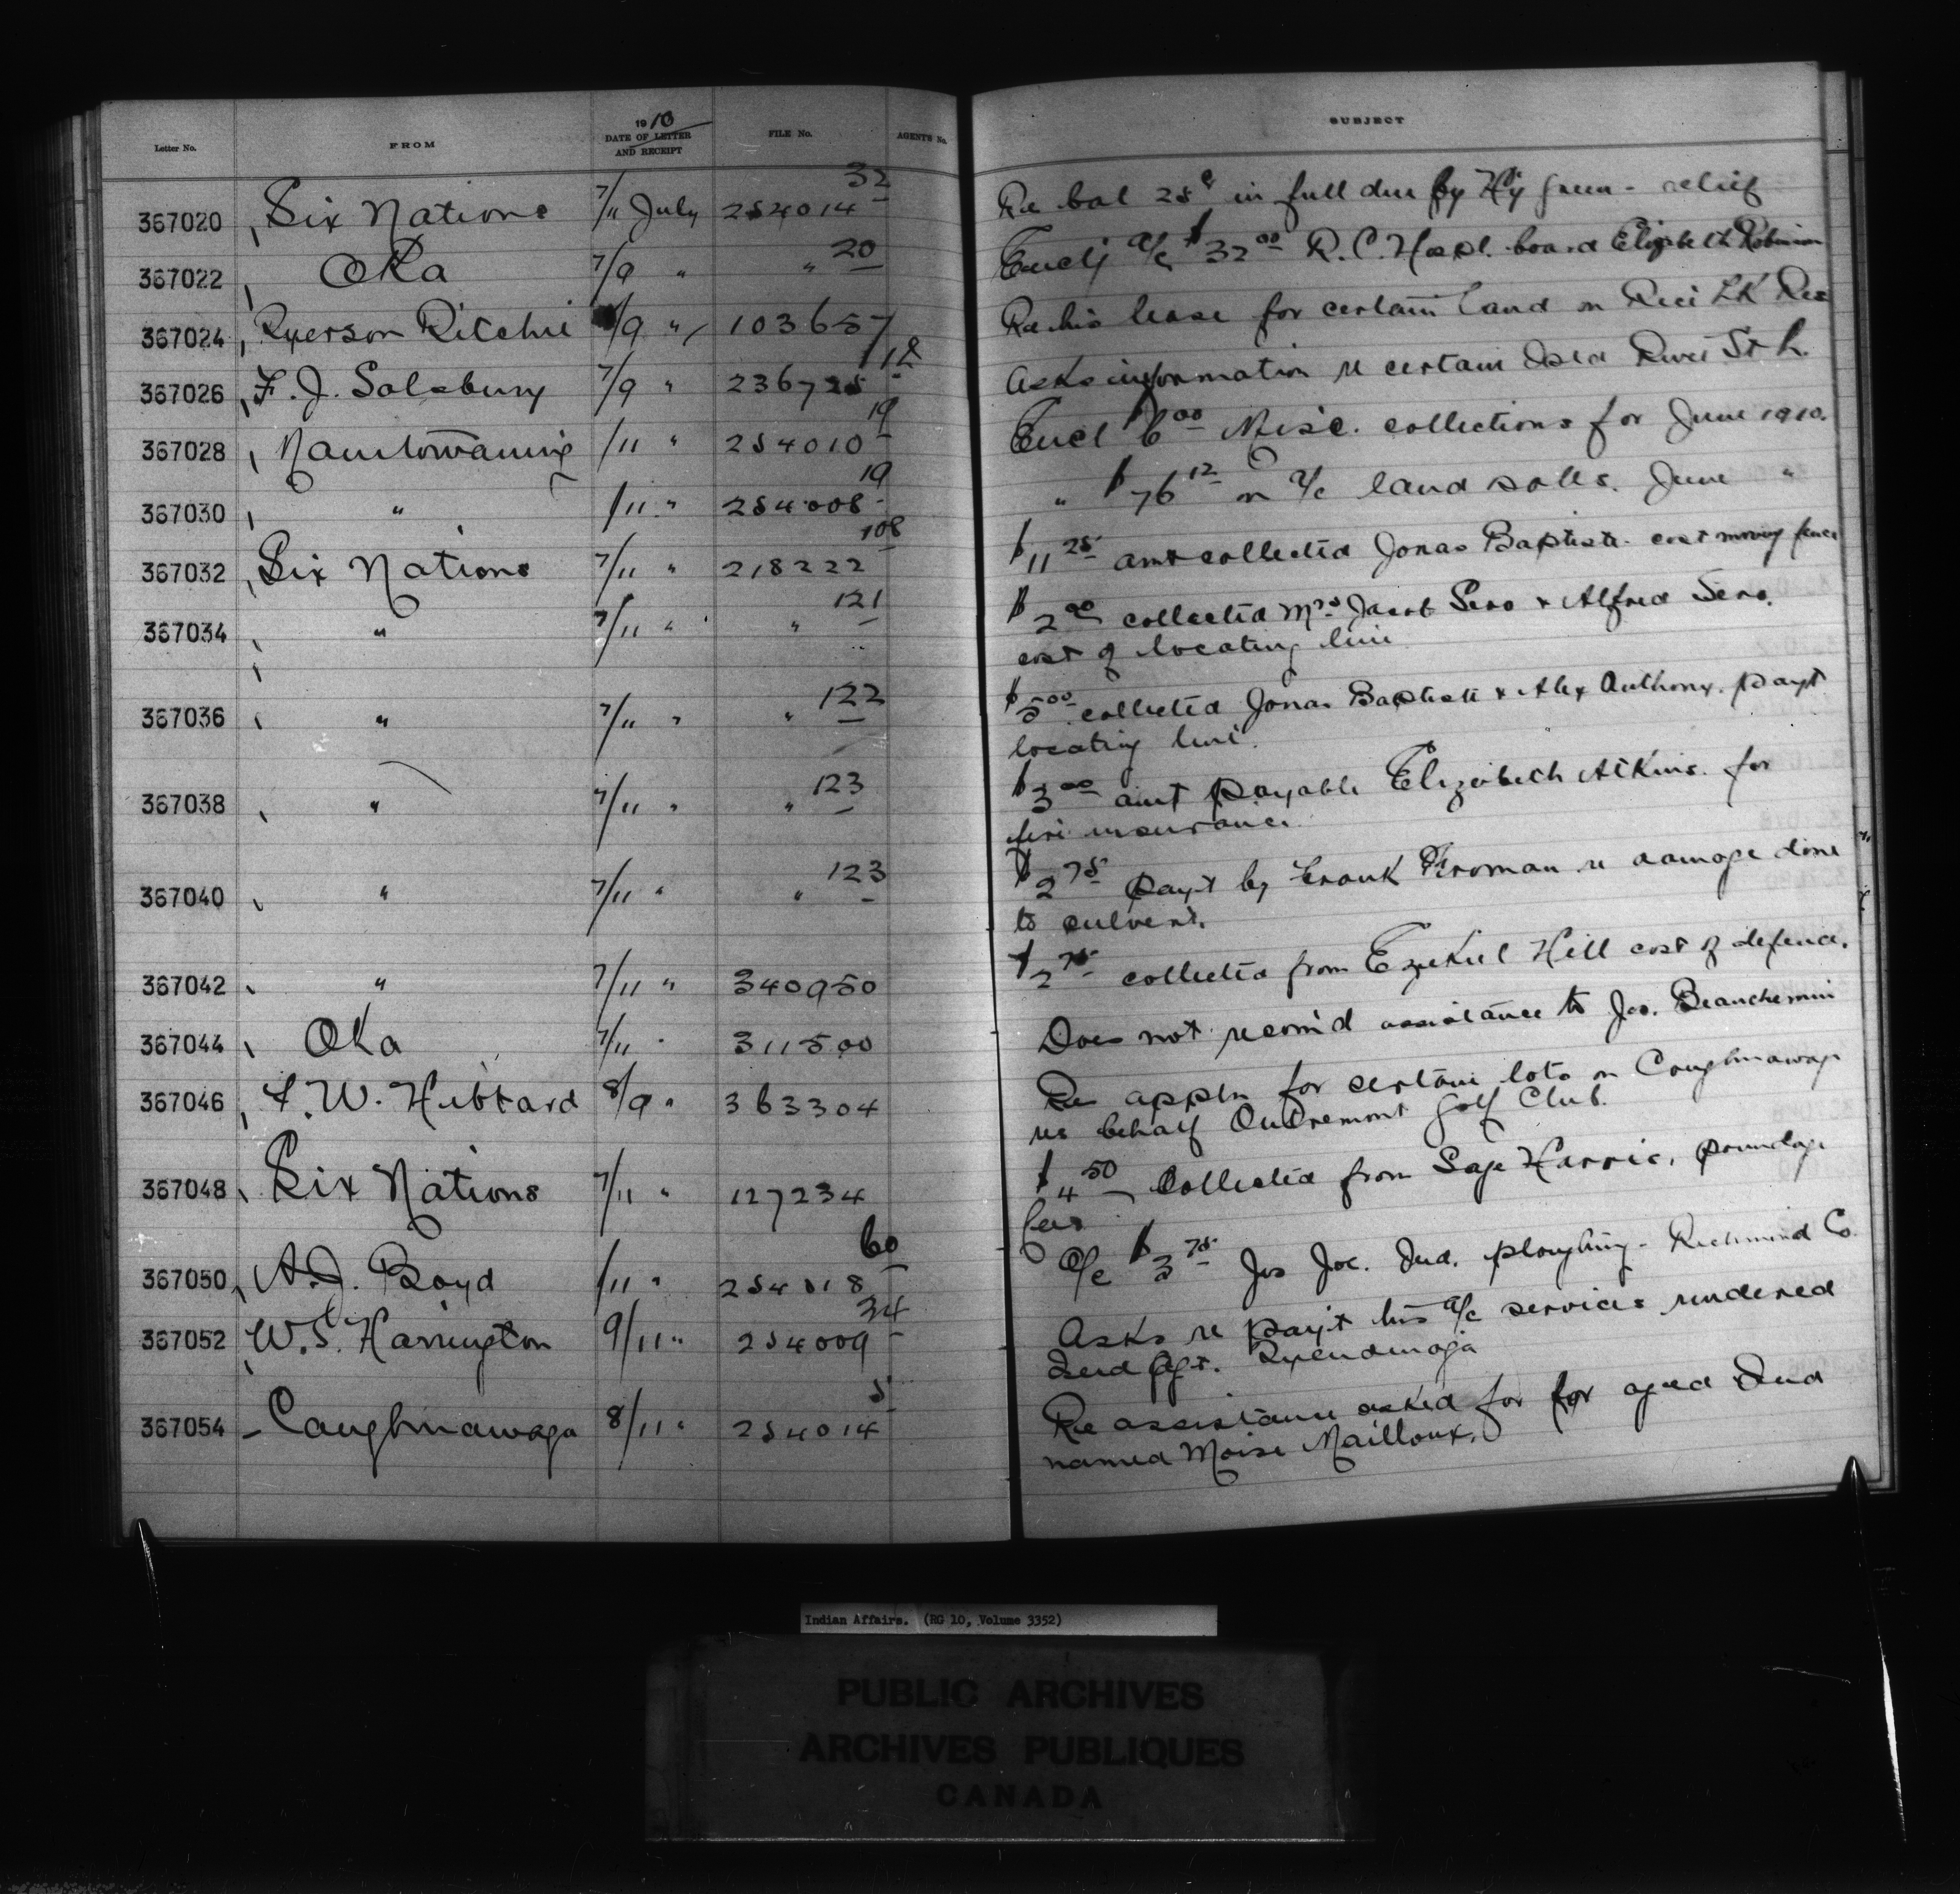 1910
Letter No. FROM DATE OF LETTER AND RECEIPT FILE No. AGENTS No. SUBJECT
367020 Six Nations 7/11 July 254014 32 Re bal 25c in full due by Hy Green - relief
367022 Oka 7/9 " " 20 Encl a/c $32.00 R.C. Hospl. board Elizabeth Robinson
367024 Ryerson Ritchie /9 " 103657 Re his lease for certain land on Rice LK Res
367026 F. J. Salsbury 7/9 " 236725 12 Asks information re certain Isld River St L.
367028 Manitowaning /11 " 254010 19 Encl $6.00 Misc. collections for June 1910.
367030 " /11 " 254008 19 " $76.12 on a/c land sales. June "
367032 Six Nations 7/11 " 218222 108 $11.25 amt collected Jonas Baptiste cost moving fence
367034 " 7/11 " " 121 $2.00 collected Mrs Jacob Sero & Alfred Sero.
cost of locating line
367036 " 7/11 " " 122 $5.00 collected Jonas Baptiste & Alex Anthony. payt
locating line.
367038 " 7/11 " " 123 $3.00 amt payable Elizabeth Atkins. for
fire insurance.
367040 " 7/11 " " 123 $2.75 payt by Frank Froman re damage done
to culvert.
367042 " 7/11 " 340950 $2.75 collected from Ezekiel Hill cost of defence.
367044 Oka 7/11 " 311500 Does not recom'd assistance to Jos. Beauchemin
367046 F. W. Hibbard 8/9 " 363304 Re appln for certain lots on Caughnawaga
res behalf Outremont Golf Club.
367048 Six Nations 7/11 " 127234 $4.50 Collected from Sage Harris, poundage
fees
367050 A. J. Boyd /11 " 254018 60 a/c $3.75 Jos Joe. Ind. ploughing - Richmond Co.
367052 W. S. Harrington 9/11 " 254009 34 Asks re payt his a/c services rendered
Ind Agt. Tyendinaga
367054 Caughnawaga 8/11 " 254014 5 Re assistance asked for for aged Ind
named Moise Mailloux.
Indian Affairs. (RG 10, Volume 3352)
PUBLIC ARCHIVES
ARCHIVES PUBLIQUES
CANADA